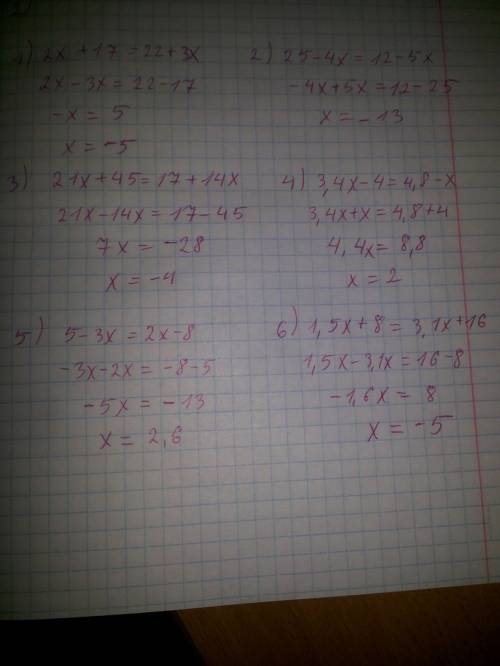 1) 2x + 17 = 22 + 3x
2x - 3x = 22 - 17
-x = 5
x = -5
2) 25 - 4x = 12 - 5x
-4x + 5x = 12 - 25
x = -13
3) 21x + 45 = 17 + 14x
21x - 14x = 17 - 45
7x = -28
x = -4
4) 3,4x - 4 = 4,8 - x
3,4x + x = 4,8 + 4
4,4x = 8,8
x = 2
5) 5 - 3x = 2x - 8
-3x - 2x = -8 - 5
-5x = -13
x = 2,6
6) 1,5x + 8 = 3,1x + 16
1,5x - 3,1x = 16 - 8
-1,6x = 8
x = -5